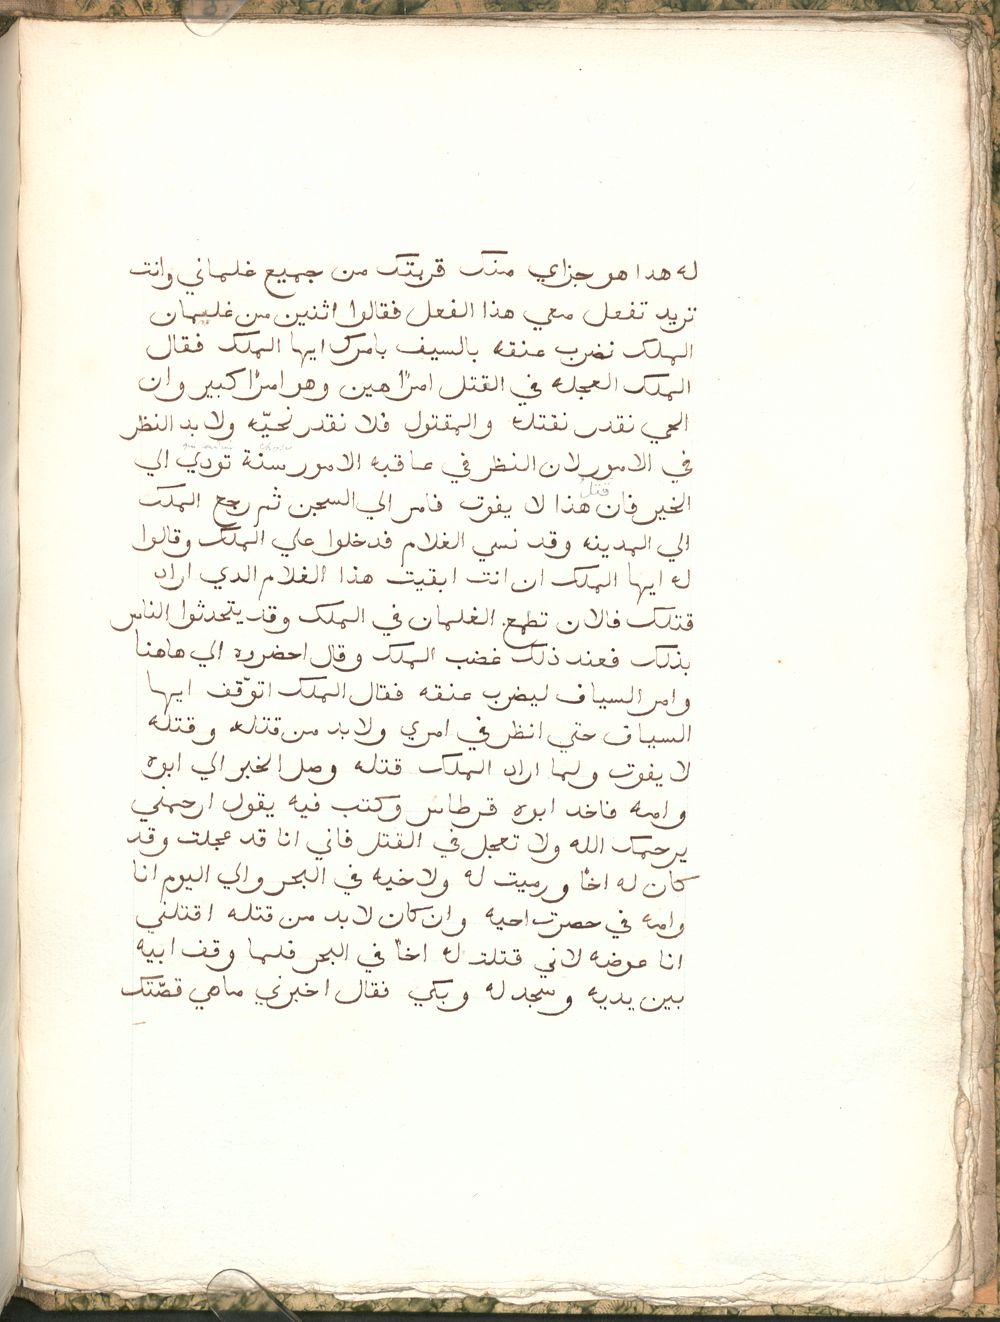 له هدا هو جزاي منك قربتك من جميع غلماني وانت
تريد تفعل معي هذا الفعل فقالوا اثنين من غلمان
الملك نضرب عنقه بالسيف بامرك ايها الملك فقال
الملك العجله في القتل امرًا هين وهو امرًا كبير وان
الحي نقدر نقتله والمقتول فلا نقدر نحيّه ولا بد النظر
في الامور لان النظر في عاقبه الامور سنة تودي الي
قتل
الخير فان هذا لا يفوت فامر الي السجن ثم رجع الملك
الي المدينه وقد نسي الغلام فدخلوا علي الملك وقالوا
له ايها الملك ان انت ابقيت هذا الغلام الدي اراد
قتلك فالان تطمع الغلمان في الملك وقد يتحدثوا الناس
بذلك فعند ذلك غضب الملك وقال احضروه الي هاهنا
وامر السياف ليضرب عنقه فقال الملك اتوّقف ايها
السياف حتي انظر في امري ولا بد من قتله وقتله
لا يفوت ولما اراد الملك قتله وصل الخبر الي ابوه
وامه فاخد ابوه قرطاس وكتب فيه يقول ارحمني
يرحمك الله ولا تعجل في القتل فاني انا قد عجلت وقد
كان له اخًا ورميت له ولاخيه في البحر والي اليوم انا
وامه في حصرت احيه وان كان لا بد من قتله اقتلني
انا عوضه لاني قتلت له اخًا في البحر فلما وقف ابيه
بين يديه وسجد له وبكي فقال اخبرني ماهي قصّتك